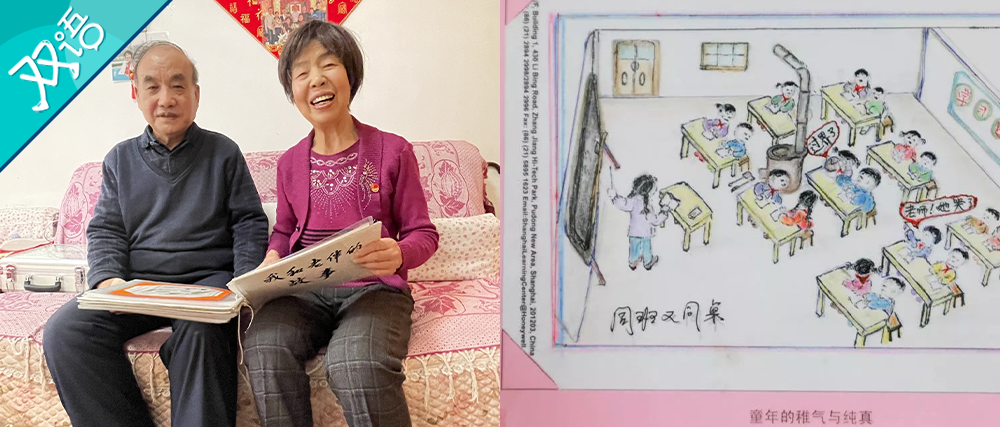 双语
我和老伴的
故事
Building 1, 430 Li Bing Road, Zhang Jiang Hi-Tech Park, Pudong New Area, Shanghai, 201203, China
(86) (21) 2894 2998/2894 2996 Fax: (86) (21) 5895 1623 Email:ShanghaiLearningCenter@Honeywell.
过界了
老师!她哭
同班又同桌
童年的稚气与纯真